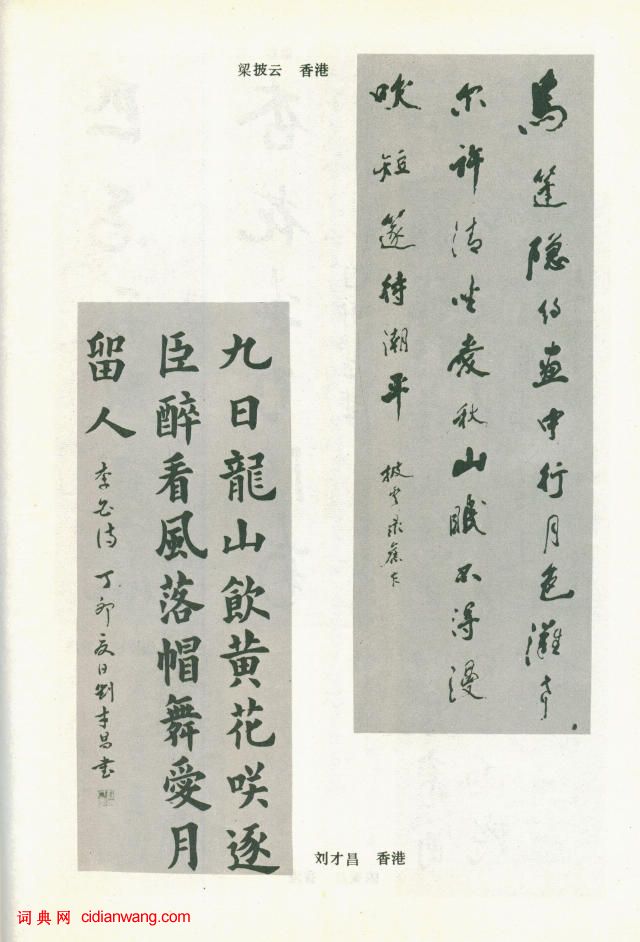 梁披云 香港
烏篷隐约画中行月色灘声
尔許清坐愛秋山眠不得漫
吹短篴待潮平 披雲录舊作
九日龍山飲黄花咲逐
臣醉看風落帽舞愛月
留人 李白詩 丁卯夏日劉才昌書
刘才昌 香港
词典网 cidianwang.com